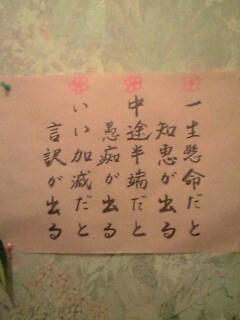 一生懸命だと
知恵が出る
中途半端だと
愚痴が出る
いい加減だと
言訳が出る